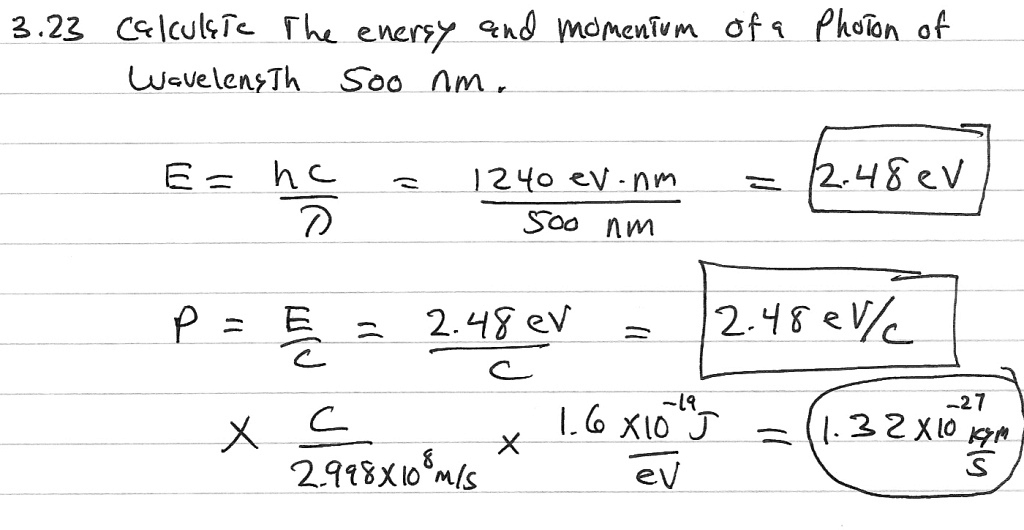 3.23 Calculate The energy and momentum of a Photon of
Wavelength 500 nm.
E = hc/λ = 1240 eV·nm / 500 nm = 2.48 eV
P = E/c = 2.48 eV / c = 2.48 eV/c
× c / 2.998×10⁸ m/s × 1.6 ×10⁻¹⁹ J / eV = 1.32×10⁻²⁷ kg·m / s